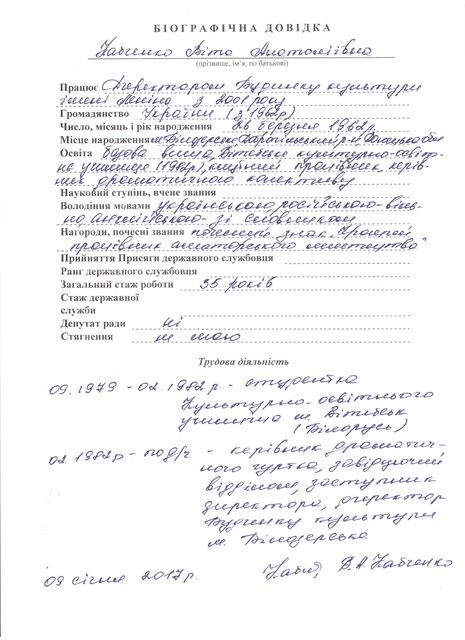 БІОГРАФІЧНА ДОВІДКА
Кабченко Віта Анатоліївна
(прізвище, ім'я, по батькові)
Працює Директором Будинку культури
імені Леніна з 2001 року
Громадянство України (з 1962р)
Число, місяць і рік народження 26 березня 1962р.
Місце народження м. Білозерське Донецька обл
Освіта вища, Вітебське культурно-освіт-
не училище (1982р), керів-
ник драматичного колективу
Науковий ступінь, вчене звання
Володіння мовами українською, російською - віль-
но, англійською - зі словником
Нагороди, почесні звання почесний знак
працівник аматорського мистецтва"
Прийняття Присяги державного службовця
Ранг державного службовця
Загальний стаж роботи 35 років
Стаж державної
служби
Депутат ради ні
Стягнення не маю
Трудова діяльність
09.1979 - 02.1982 р - студентка
Культурно-освітнього
училища м. Вітебськ
(Білорусь)
02.1982р - по д/ч - керівник драматич-
ного гуртка, завідуючий
відділом, заступник
директора, директор
Будинку культури
м. Білозерське
09 січня 2017р. В.А Кабченко